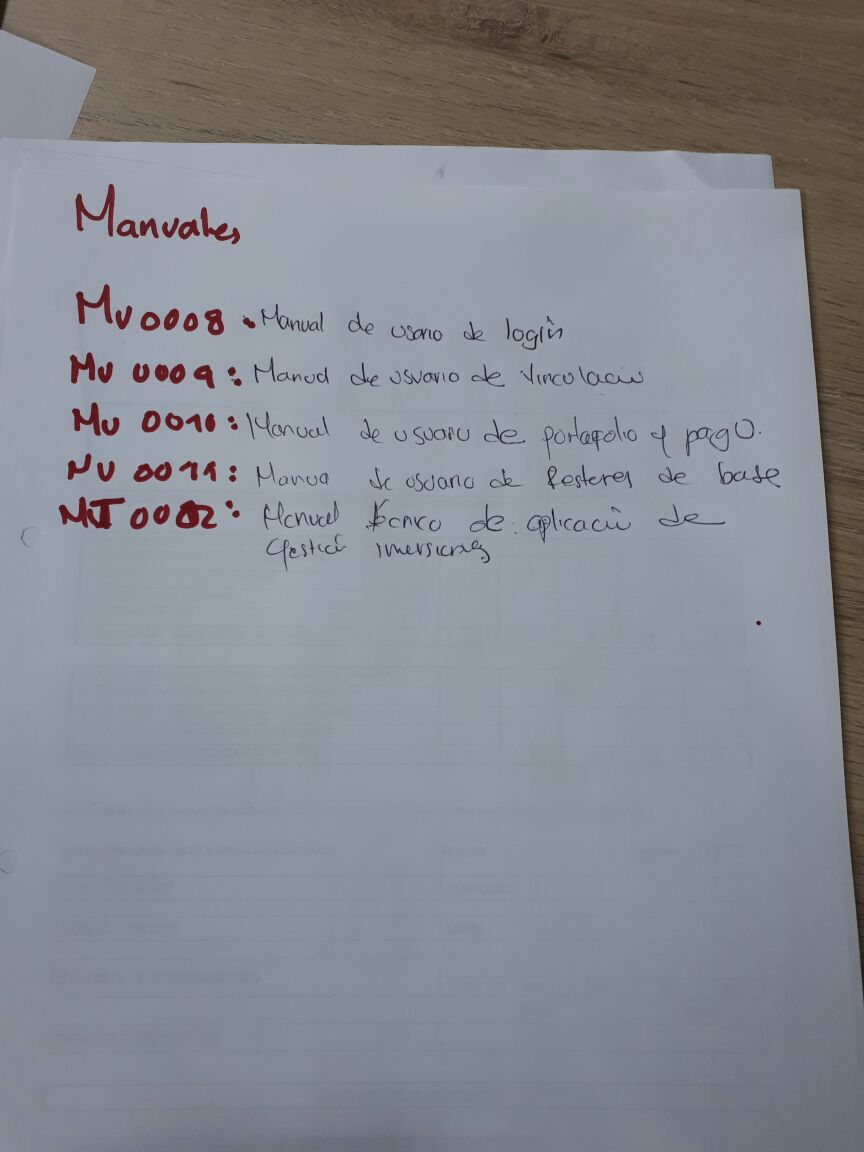 Manuales
MU0008: Manual de usario de login
MU 0009: Manual de usuario de vinculació
MU 0010: Manual de usuario de portafolio y pago.
MU 0011: Manua de usuario de de base
MT 0002: Manual técnico de aplicació de
Gestió inversiones